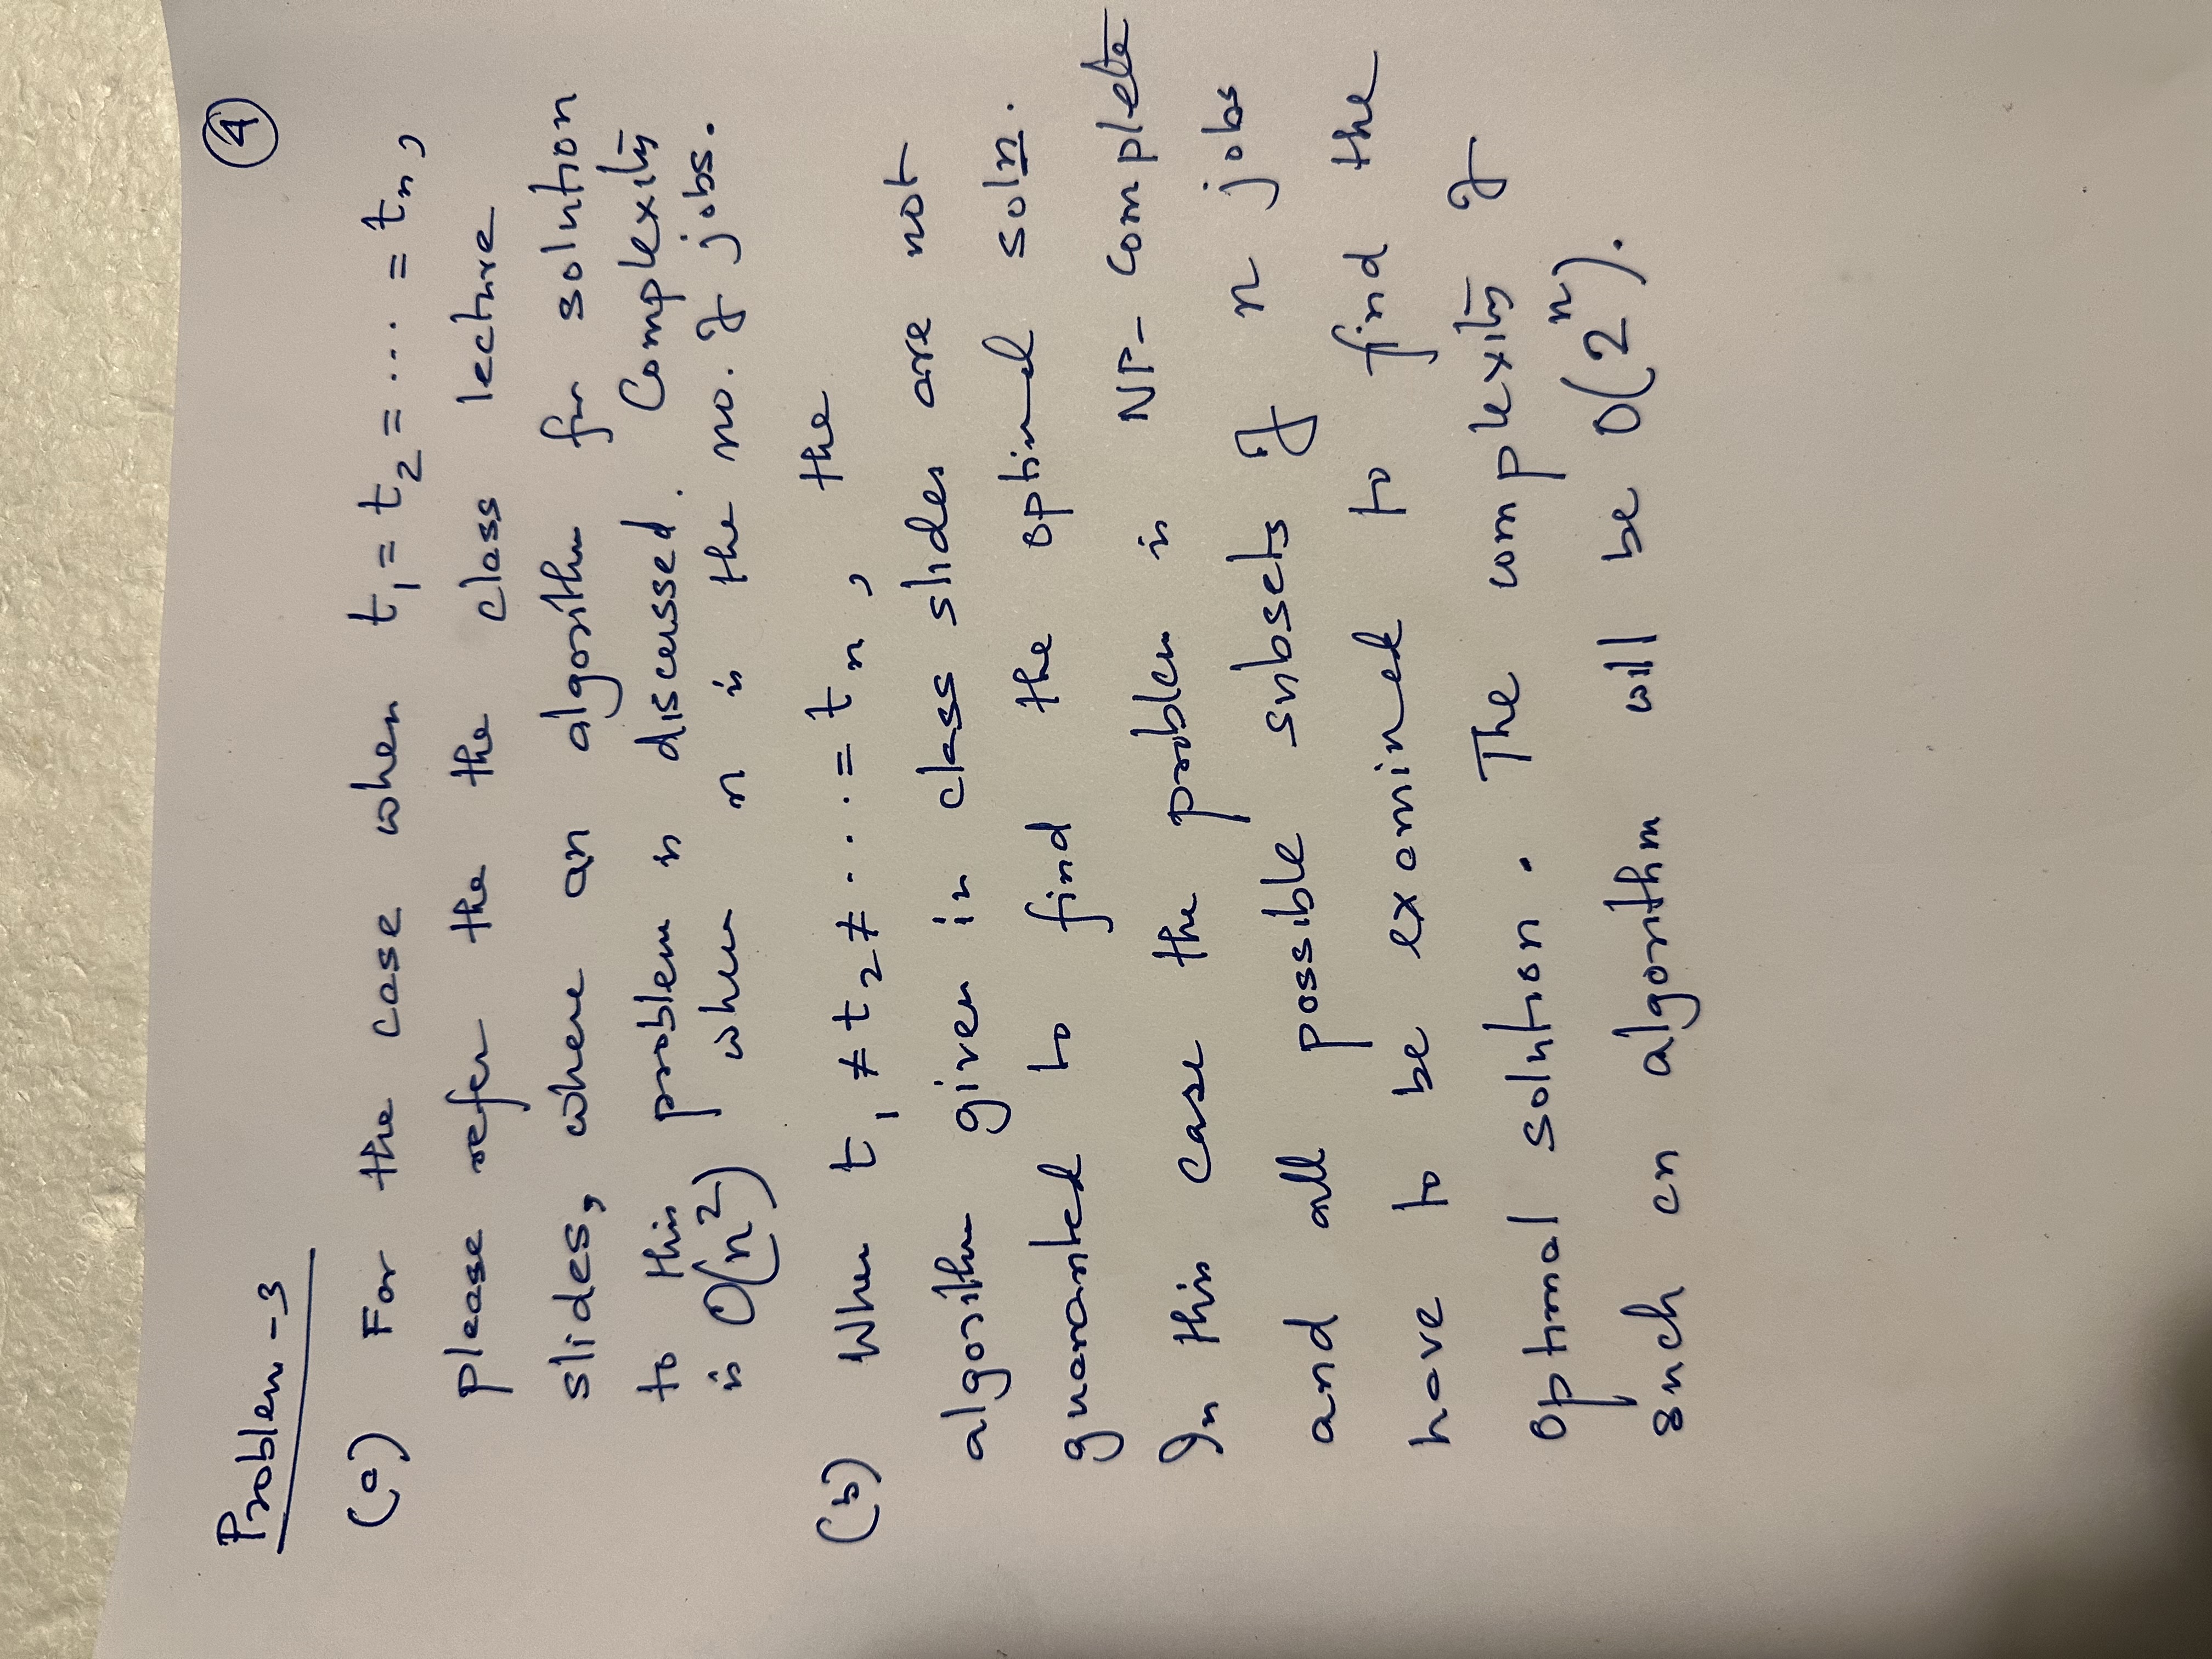 Problem - 3
4
(a) For the case when t₁ = t₂ = ... = tₙ,
please refer the the class lecture
slides, where an algorithm for solution
to this problem is discussed. Complexity
is O(n²) when n is the no. of jobs.
(b) When t₁ ≠ t₂ ≠ ... = tₙ, the
algorithm given in class slides are not
guaranted to find the optimal soln.
In this case the problem is NP-complete
and all possible subsets of n jobs
have to be examined to find the
optimal solution. The complexity of
such an algorithm will be O(2ⁿ).